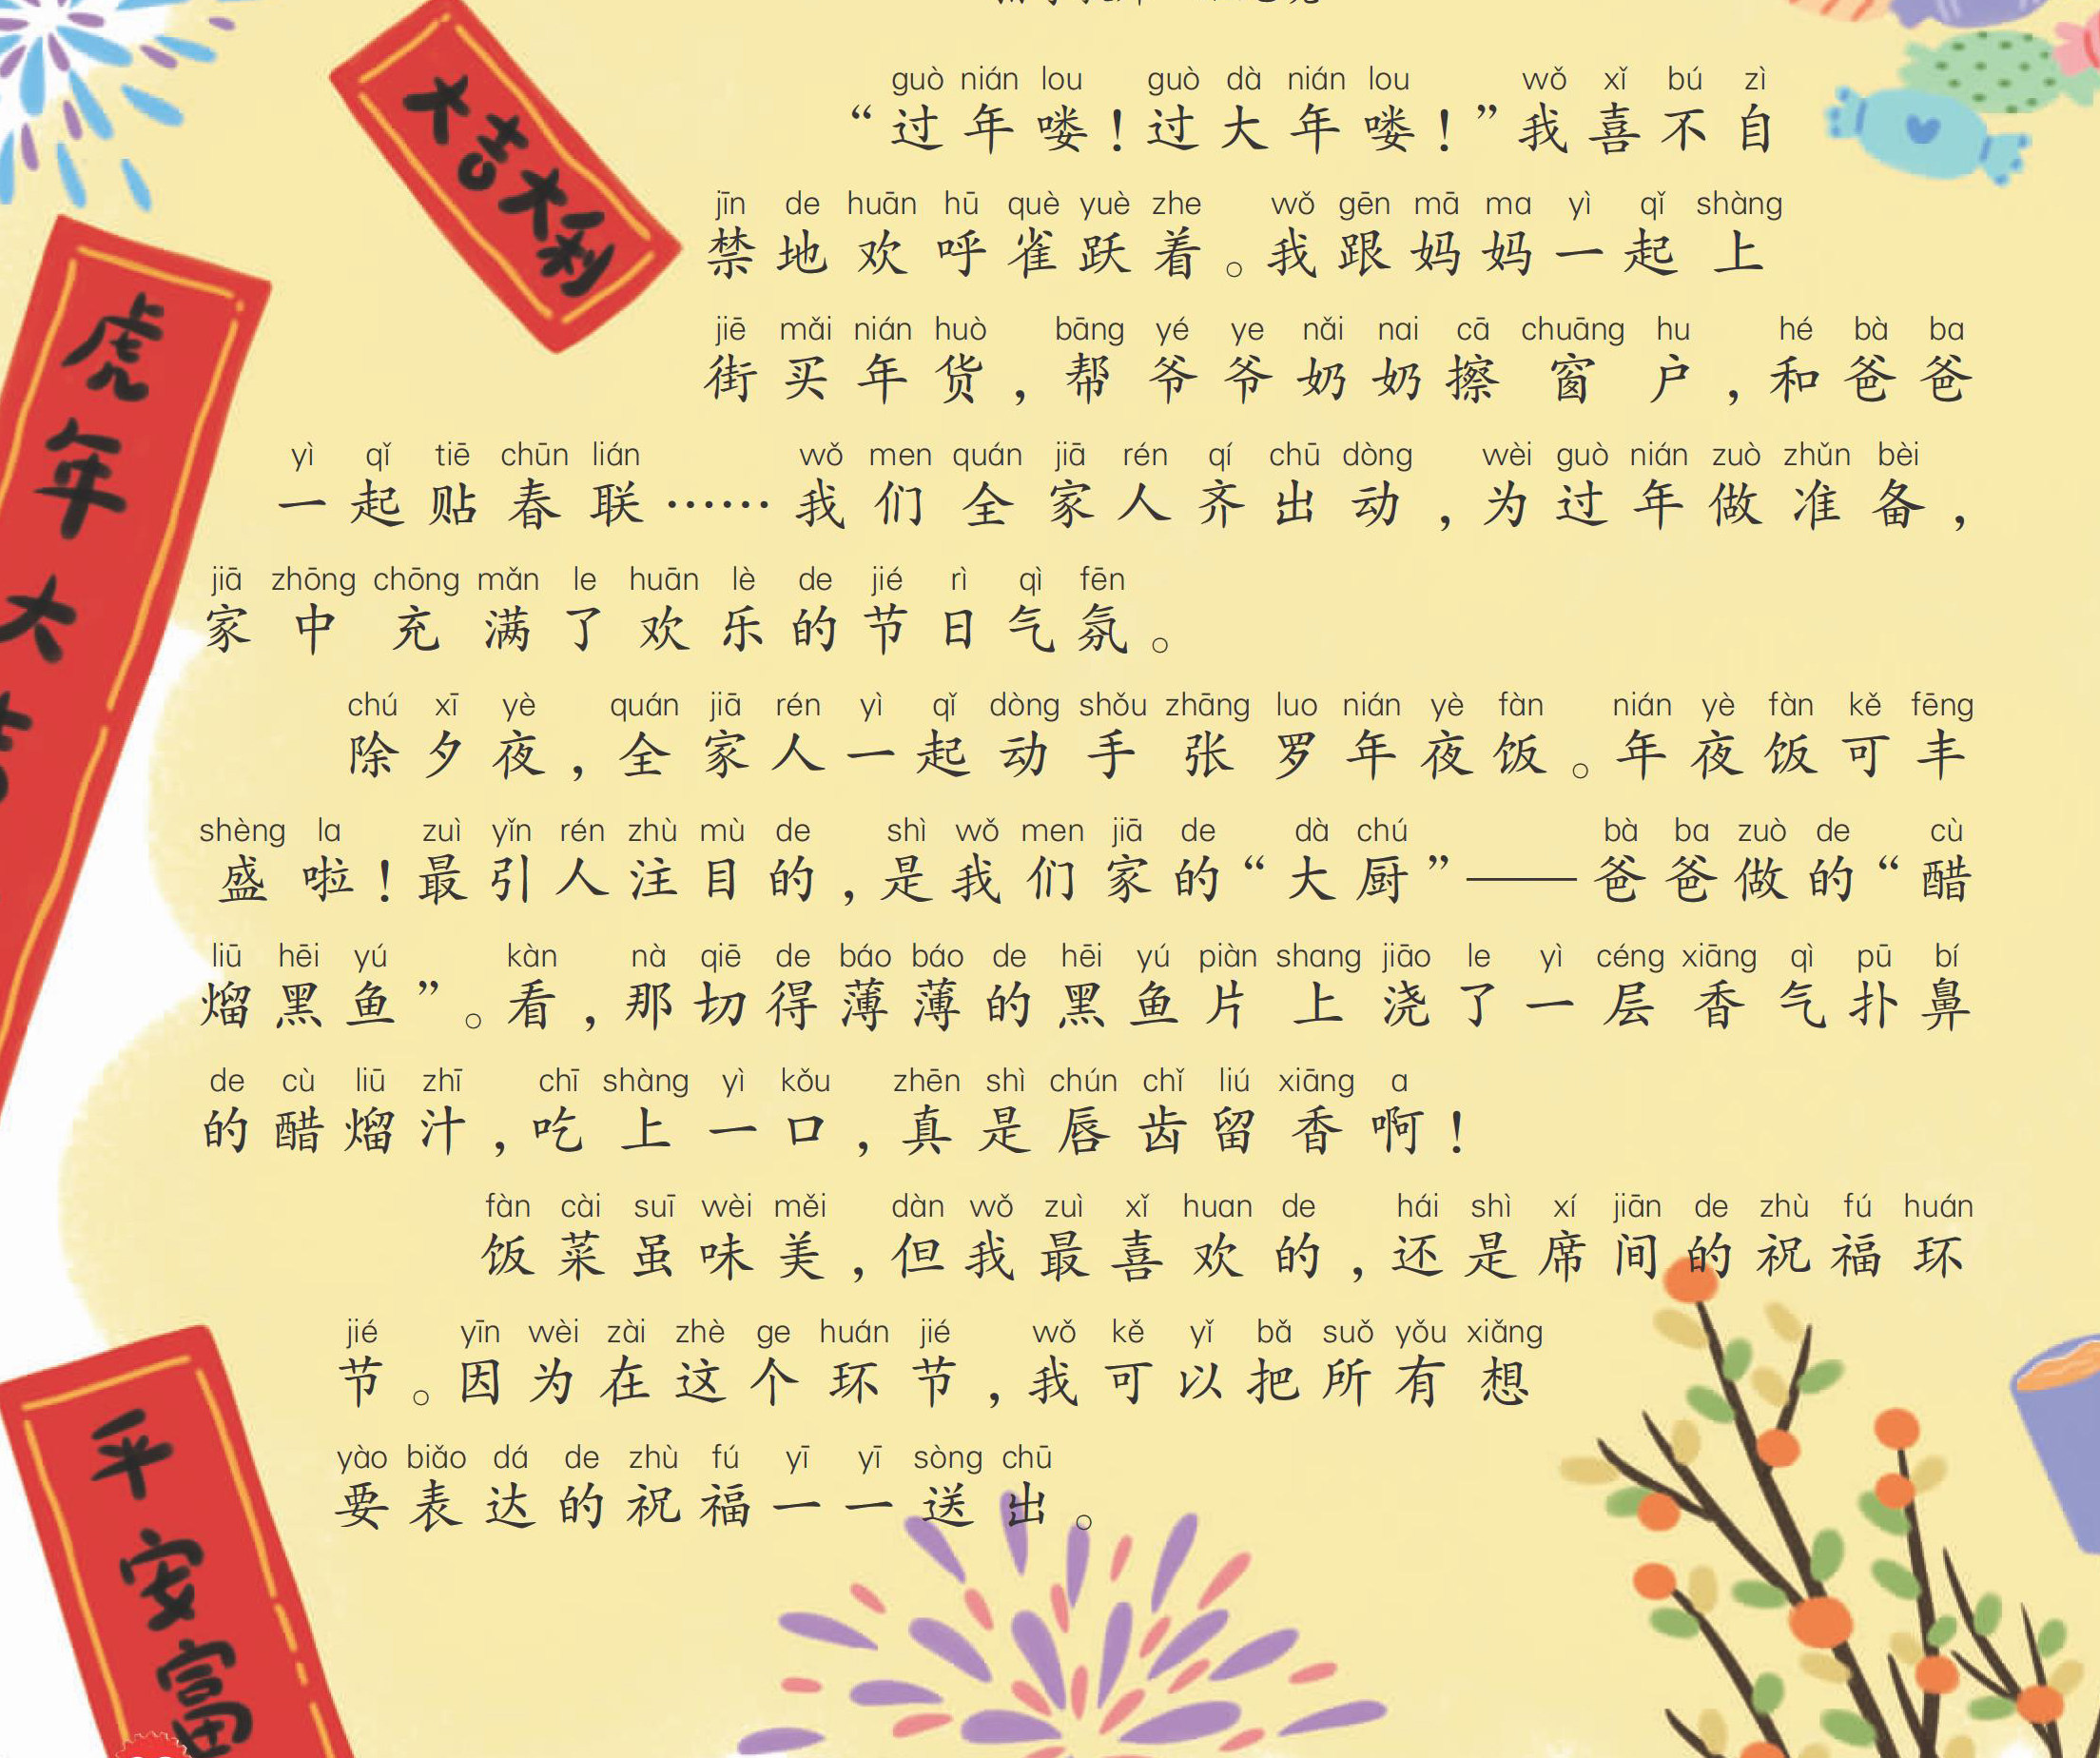 大吉大利
虎年大吉
guò nián lou guò dà nián lou wǒ xǐ bú zì
“过年喽！过大年喽！”我喜不自
jīn de huān hū què yuè zhe wǒ gēn mā ma yì qǐ shàng
禁地欢呼雀跃着。我跟妈妈一起上
jiē mǎi nián huò bāng yé ye nǎi nai cā chuāng hu hé bà ba
街买年货，帮爷爷奶奶擦窗户，和爸爸
yì qǐ tiē chūn lián wǒ men quán jiā rén qí chū dòng wèi guò nián zuò zhǔn bèi
一起贴春联……我们全家人齐出动，为过年做准备，
jiā zhōng chōng mǎn le huān lè de jié rì qì fēn
家中充满了欢乐的节日气氛。
chú xī yè quán jiā rén yì qǐ dòng shǒu zhāng luo nián yè fàn nián yè fàn kě fēng
除夕夜，全家人一起动手张罗年夜饭。年夜饭可丰
shèng la zuì yǐn rén zhù mù de shì wǒ men jiā de dà chú bà ba zuò de cù
盛啦！最引人注目的，是我们家的“大厨”——爸爸做的“醋
liū hēi yú kàn nà qiē de báo báo de hēi yú piàn shang jiāo le yì céng xiāng qì pū bí
熘黑鱼”。看，那切得薄薄的黑鱼片上浇了一层香气扑鼻
de cù liū zhī chī shàng yì kǒu zhēn shì chún chǐ liú xiāng a
的醋熘汁，吃上一口，真是唇齿留香啊！
fàn cài suī wèi měi dàn wǒ zuì xǐ huan de hái shì xí jiān de zhù fú huán
饭菜虽味美，但我最喜欢的，还是席间的祝福环
jié yīn wèi zài zhè ge huán jié wǒ kě yǐ bǎ suǒ yǒu xiǎng
节。因为在这个环节，我可以把所有想
yào biǎo dá de zhù fú yī yī sòng chū
要表达的祝福一一送出。
平安富